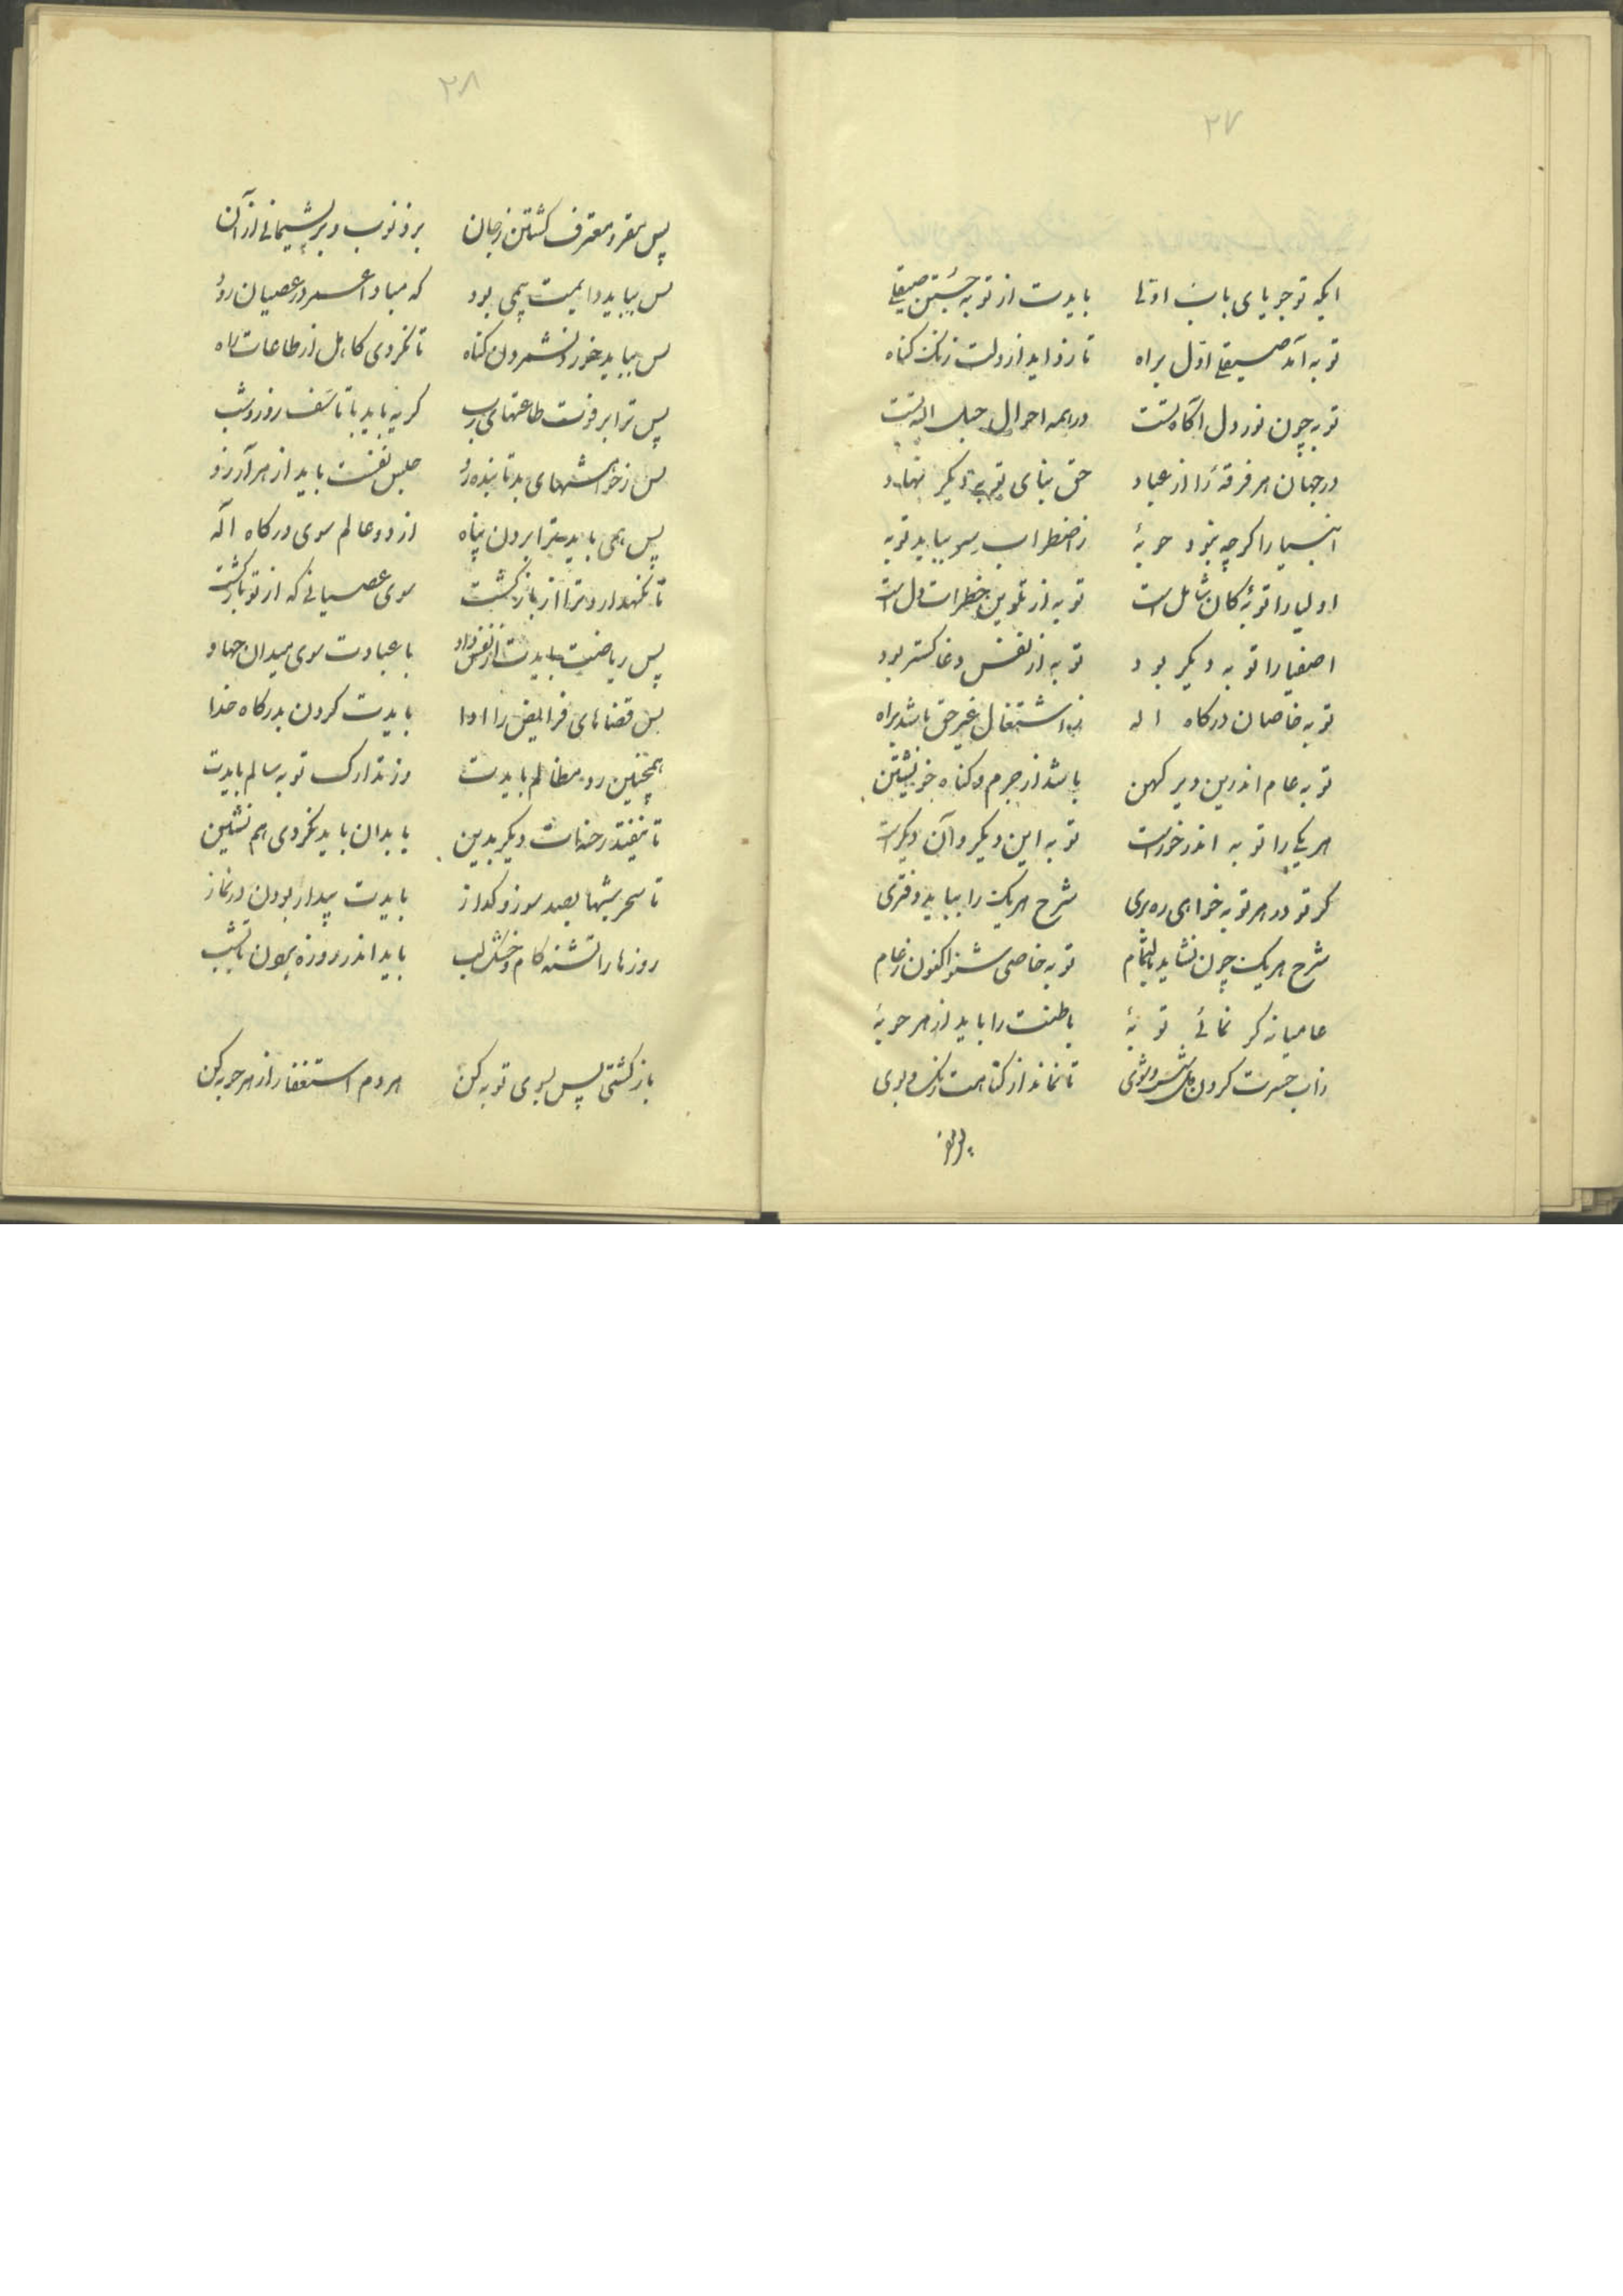 ۲۷
ایکه تو جویای باب اوّلی بایدت از توبه جُستن صیقلی
توبه آمد صیقلی اوّل براه تا زداید از دلت زنک کناه
توبه چون نور دل آکاه تست در همه احوال حبل اله تست
در جهان هر فرقهٔ را از عباد حق بنای توبهٔ دیکر نهاد
انبیا را کرچه نبود حوبهٔ ز اضطراب سر بباید توبه
اولیا را توبهٔ کان شامل است توبه از تلوین خطرات دل است
اصفیا را توبه دیکر بود توبه از نفس دغا کستر بود
توبه خاصان درکاه اله ز اشتغال غیر حق باشد براه
توبه عام اندرین دیر کهن باشد از جرم و کناه خویشتن
هر یکی را توبه اندر خور است توبه این دیکر و آن دیکر است
کر تو در هر توبه خواهی ره بری شرح هر یک را بباید دفتری
شرح هر یک چون نشاید بالتمام توبه خاصی شنو اکنون ز عام
عامیانه کر نمائی توبهٔ باطنت را باید از هر حوبهٔ
زاب حسرت کردن شست و شوی تا نماند از کناهت رنک و بوی
۲۸
پس مقر و معترف کشتن ز جان بر ذنوب و بر پشیمانی از آن
پس بباید دایمت بیمی بود که مبادا عمر در عصیان رود
پس بباید خورد نشمردن کناه تا نکردی کاهل از طاعات راه
پس ترا بر فوت طاعتهای رب کریه باید با تاسّف روز و شب
پس ز خواهشهای بد تابنده رو حبس نفست باید از هر آرزو
پس همی باید ترا بردن پناه از دو عالم سوی درکاه آله
تا نکهدارد ترا از بازکشت سوی عصیانی که از تو بازکشت
پس ریاضت بایدت از نفس داد با عبادت سوی میدان جهاد
پس قضاهای فرایض را ادا بایدت کردن بدرکاه خدا
همچنین رد مظالم بایدت وز تدارک توبه سالم بایدت
تا نیفتد رخنهات دیکر بدین با بدان باید نکردی هم نشین
تا سحر شبها بصد سوز و کداز بایدت بیدار بودن در نماز
روزها را تشنه کام و خشک لب باید اندر روزه بودن تا بشب
باز کشتی پس بسوی توبه کن هر دم استغفار از هر حوبه کن